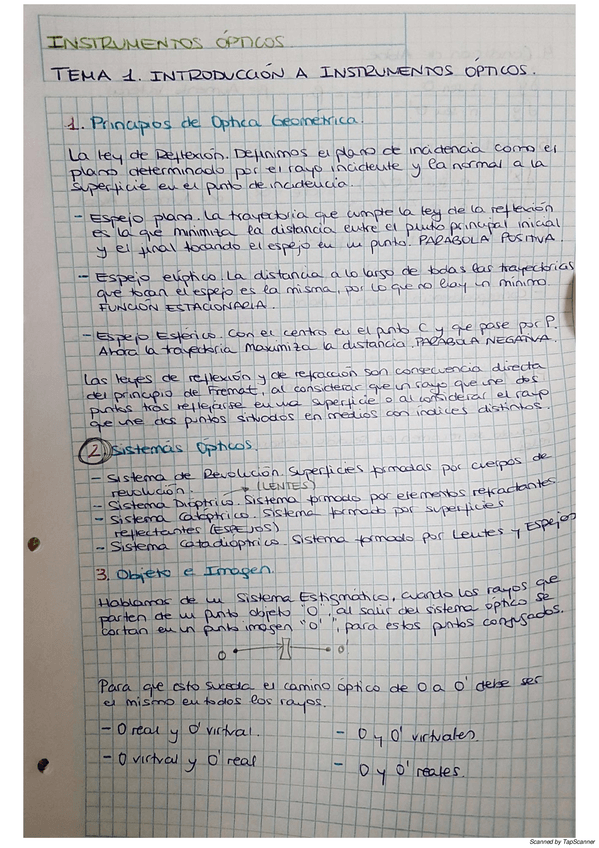 INSTRUMENTOS ÓPTICOS.
TEMA 1. INTRODUCCIÓN A INSTRUMENTOS ÓPTICOS.
1. Principios de Óptica Geométrica.
La ley de Reflexión. Definimos el plano de incidencia como el
plano determinado por el rayo incidente y la normal a la
superficie en el punto de incidencia.
- Espejo plano. La trayectoria que cumple la ley de la reflexión
es la que minimiza la distancia entre el punto principal inicial
y el final tocando el espejo en un punto. PARABOLA POSITIVA.
- Espejo elíptico. La distancia a lo largo de todas las trayectorias
que tocan el espejo es la misma, por lo que no hay un mínimo
FUNCIÓN ESTACIONARIA.
- Espejo Esférico. Con el centro en el punto C y que pase por P.
Ahora la trayectoria maximiza la distancia. PARÁBOLA NEGATIVA.
Las leyes de reflexión y de refracción son consecuencia directa
del principio de Fremat, al considerar que un rayo que une dos
puntos tras reflejarse en una superficie o al considerar el rayo
que une dos puntos situados en medios con índices distintos.
2 Sistemas Ópticos.
- Sistema de Revolución. Superficies formadas por cuerpos de
revolución. → (LENTES)
- Sistema Dióptrico. Sistema formado por elementos refractantes
- Sistema Catóptrico. Sistema formado por superficies
reflectantes (ESPEJOS)
- Sistema Catadióptrico. Sistema formado por Lentes y Espejos
3. Objeto e Imagen.
Hablamos de un Sistema Estigmático, cuando los rayos que
parten de un punto objeto "O" al salir del sistema óptico se
cortan en un punto imagen "O'", para estos puntos conjugados.
O O'
Para que esto suceda el camino óptico de O a O' debe ser
el mismo en todos los rayos.
- O real y O' virtual.
- O y O' virtuales.
- O virtual y O' real
- O y O' reales.
Scanned by TapScanner